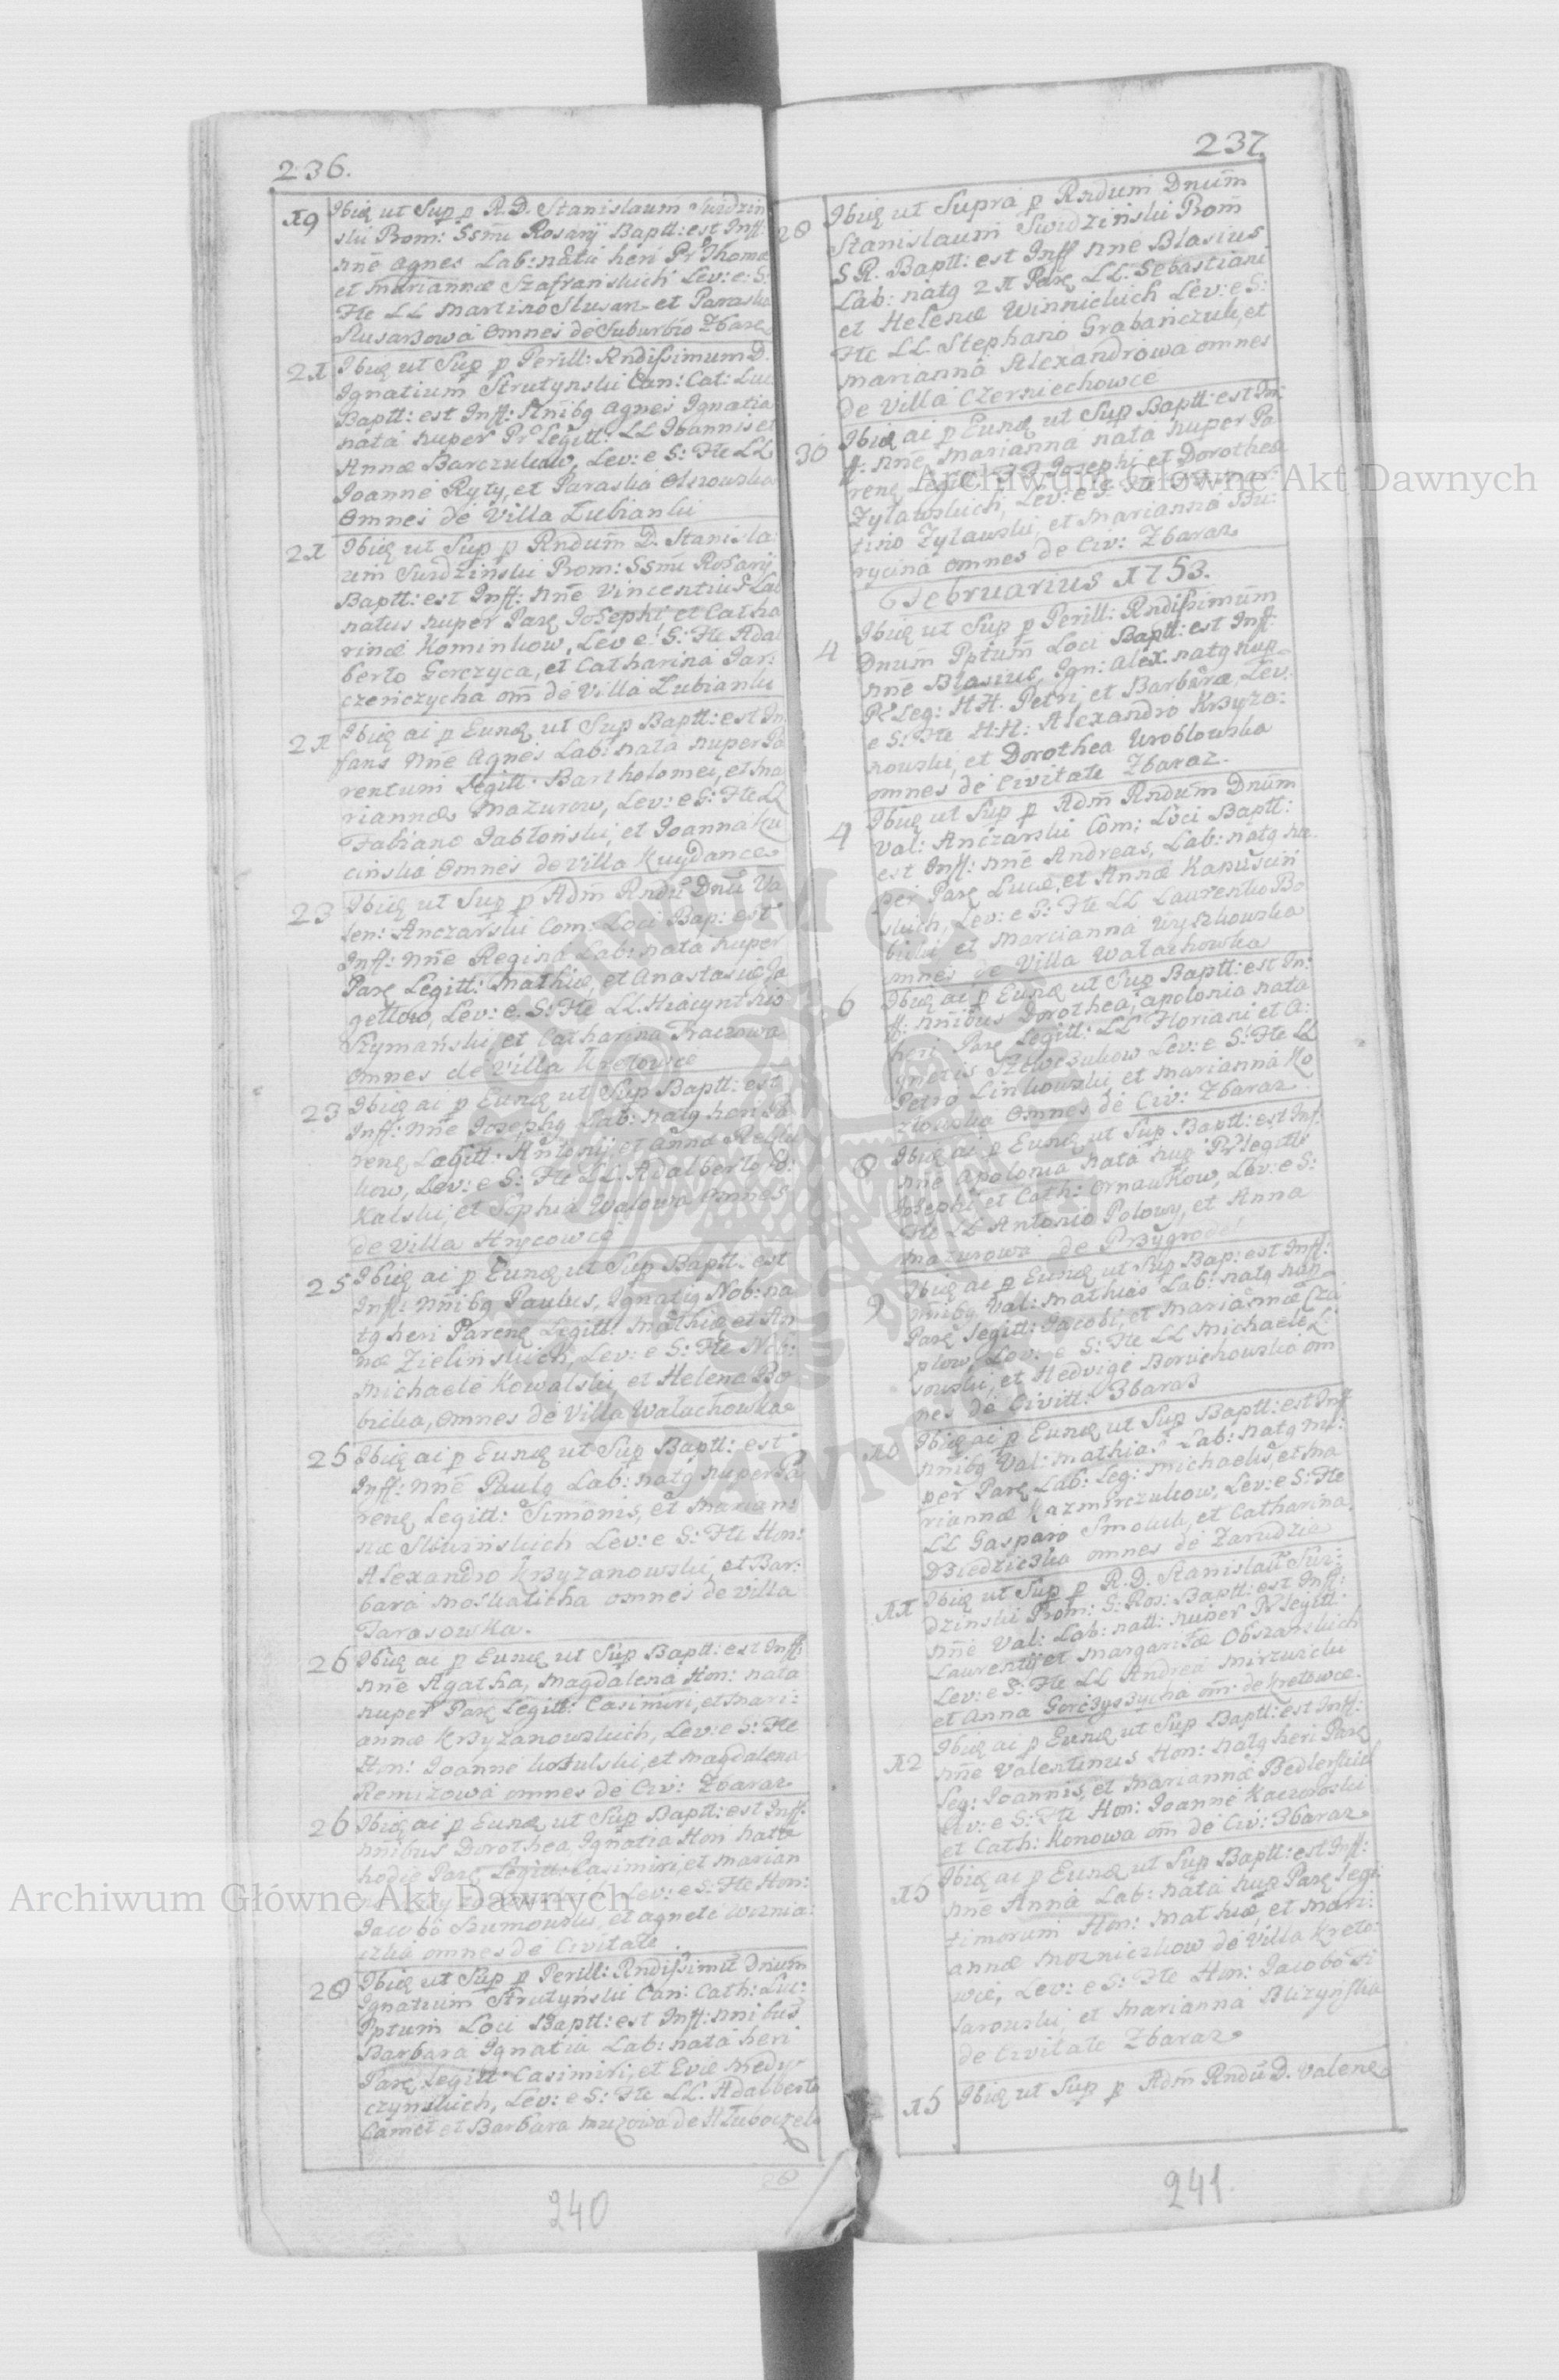 236.
19 Ibiq ut Sup p R.D. Stanislaum Swidzin
ski Prom: SSmi Rosarij Baptt: est Inff:
nnē Agnes Lab: nata heri Pr Thomæ
et Mariannæ Szafranskich Lev: e S:
Fte LL Martino Slusarz et Paraska
Slusarzowa omnes de Suburbio Zbaraz
21 Ibiq ut Sup p Perill: Rndissimum D.
Ignatium Strutynski Can: Cat: Luc:
Baptt: est Inff: Nnibg Agnes Ignatia
nata nuper Pr Legitt: LL Ioannis et
Annæ Barczukow, Lev: e S: Fte LL
Joanne Ryty, et Paraska Olszowska
omnes de Villa Lubianki
21 Ibiq ut Sup p Rndum D. Stanisla:
um Swidzinski Prom: SSmi Rosarij
Baptt: est Inff: nnē Vincentius Lab
natus nuper Parē Josephi, et Catha
rinæ Kominkow, Lev e S: Fte Adal
berto Gorczyca, et Catharina Jar:
czenczycha om de Villa Lubianki
21 Ibiq ai p Eunq ut Sup Baptt: est In
fans Nnē Agnes Lab: nata nuper Pa
rentum Legitt: Bartholomei, et Ma
riannæ Mazurow, Lev: e S: Fte LL
Fabiano Jabłonski, et Joanna Ku
cinska omnes de Villa Kuydance
23 Ibiq ut Sup p Adm Rndū Dnū Va
len: Anczarski Com: Loci Bap: est
Inff: nnē Regina Lab: nata nuper
Parē Legitt: Mathiæ, et Anastasiæ Ja
gettow, Lev: e S: Fte LL. Hiacyntho
Szymanski, et Catharina Traczowa
omnes de Villa Kretowce
23 Ibiq ai p Eunq ut Sup Baptt: est
Inff: Nnē Josephg Lab: natg heri Pa
renē, Legitt: Antonij et Annæ
kow, Lev: e S: Fte LL. Adalberto
Kalski, et Sophia Walowa omnes
de Villa Hrycowce
25 Ibiq ai p Eunq ut Sup Baptt: est
Inff: Nnibg Paulus, Ignatig Nob: na
tg heri Parenē Legitt: Mathiæ et An
næ Zielinskich, Lev: e S: Fte Nob:
Michaele Kowalski, et Helena Bo
bicka, omnes de Villa Wałachowka
25 Ibiq ai p Eunq ut Sup Baptt: est
Inff: Nnē Paulg Lab: natg nuper Pa
renē Legitt: Simonis, et Marian:
næ Slowinskich Lev: e S: Fte Hon:
Alexandro Krzyzanowski, et Bar:
bara Moskaticha omnes de Villa
Tarasowka.
26 Ibiq ai p Eunq ut Sup Baptt: est Inff:
nnē Agatha, Magdalena Hon: nata
nuper Parē Legitt: Casimiri, et Mari:
annæ Krzyzanowskich, Lev: e S: Fte
Hon: Joanne Kozulski, et Magdalena
Remizowa omnes de Civ: Zbaraz
26 Ibiq ai p Eunq ut Sup Baptt: est Inff:
nnibus Dorothea, Ignatia Hon nata
hodie Parē Legitt: Casimiri, et Marian
Lev: e S: Fte Hon:
Jacobo Bumowski, et Agnete Woznia:
czka omnes de Civitate
28 Ibiq ut Sup p Perill: Rndissimū Dnum
Ignatium Strutynski Can: Cath: Luc:
Pptum Loci Baptt: est Inff: nnibus
Barbara Ignatia Lab: nata heri
Parē Legitt Casimiri, et Evæ Medy
czynskich, Lev: e S: Fte LL. Adalberto
Camet et Barbara Muzowa de Hłuboczek
240
237
28 Ibiq ut Supra p Rndum Dnum
Stanislaum Swidzinski Prom
S R. Baptt: est Inff nnē Blasius
Lab: natg 21 Parē LL. Sebastiani
et Helenæ Winnickich Lev: e S:
Fte LL Stephano Grabanczuk, et
Marianna Alexandrowa omnes
de Villa Czerniechowce
30 Ibiq ai p Eunq ut Sup Baptt: est In
ff: nnē, Marianna nata nuper Pa
renē Legitt: Josephi et Dorotheæ
Zylawskich, Lev: e S: Fte
tino Zylawski, et Marianna Bu:
rycina omnes de Civ: Zbaraz
Februarius 1753.
4 Ibiq ut Sup p Perill: Rndissimum
Dnum Pptum Loci Baptt: est Inff:
nnē Blasius, Ign: Alex: natg nup
Pr Leg: HH. Petri, et Barbaræ, Lev:
e S: Fte H:H: Alexandro Krzyza:
nowski, et Dorothea Wroblowska
omnes de Civitate Zbaraz.
4 Ibiq ut Sup p Adm Rndum Dnum
Val: Anczarski Com: Loci Baptt:
est Inff: nnē Andreas, Lab: natg nu:
per Parē Lucæ, et Annæ Kapuscin
skich, Lev: e S: Fte LL Laurentio Bo
bicki et Marcianna Wyszkowska
omnes de Villa Wałachowka
6 Ibiq ai p Eunq ut Sup Baptt: est In:
ff: nnibus Dorothea, Apolonia nata
heri Parē Legitt: LL Floriani et A:
gnetis Szewczukow Lev: e S: Fte LL
Petro Linkowski et Marianna Ko
złowska omnes de Civ: Zbaraz
8 Ibiq ai p Eunq ut Sup Baptt: est Inf:
nnē Apolonia nata nup Pr Legitt:
Josephi et Cath: Ornawkow, Lev: e S:
Fte LL Antonio Polowy, et Anna
Mazurowa de Przygrodek
9 Ibiq ai p Eunq ut Sup Bap: est Inff:
nnibg Val: Mathias Lab: natg nup
Parē Legitt: Jacobi, et Mariannæ Cza
plow, Lev: e S: Fte LL Michaele
sowski, et Hedvige Boruchowska om
nes de Civitt: Zbaraz
10 Ibiq ai p Eunq ut Sup Baptt: est Inf
nnibg Val: Mathias Lab: natg nu:
per Parē Lab: Leg: Michaelis, et Ma
riannæ Kazmirczukow, Lev: e S: Fte
LL Gasparo Smoluk, et Catharina
Dziedziczka omnes de Zarudzia
11 Ibiq ut Sup p R.D. Stanislaū Swi:
dzinski Prom: S: Ros: Baptt: est Inff:
nnē Val: Lab: natt: nuper Pr Legitt:
Laurentij et Margaritæ Obszanskich
Lev: e S: Fte LL Andrea Mirzwicki
et Anna Gorczyczycha om: de Kretowce.
12 Ibiq ai p Eunq ut Sup Baptt: est Inff:
nnē Valentinus Hon: natg heri Parē
Leg: Joannis, et Mariannæ Bedlerskich
Lev: e S: Fte Hon: Joanne Kaczorowski
et Cath: Konowa om de Civ: Zbaraz
15 Ibiq ai p Eunq ut Sup Baptt: est Inff:
nnē Anna Lab: nata nup Parē Legi
timorum Hon: Mathiæ, et Mari:
annæ Mozniczkow de Villa Kreto:
wce, Lev: e S: Fte Hon: Jacobo Si
sarowski, et Marianna Blizynska
de Civitate Zbaraz
15 Ibiq ut Sup p Adm Rndū D. Valenē
241.
Archiwum Główne Akt Dawnych
Archiwum Główne Akt Dawnych